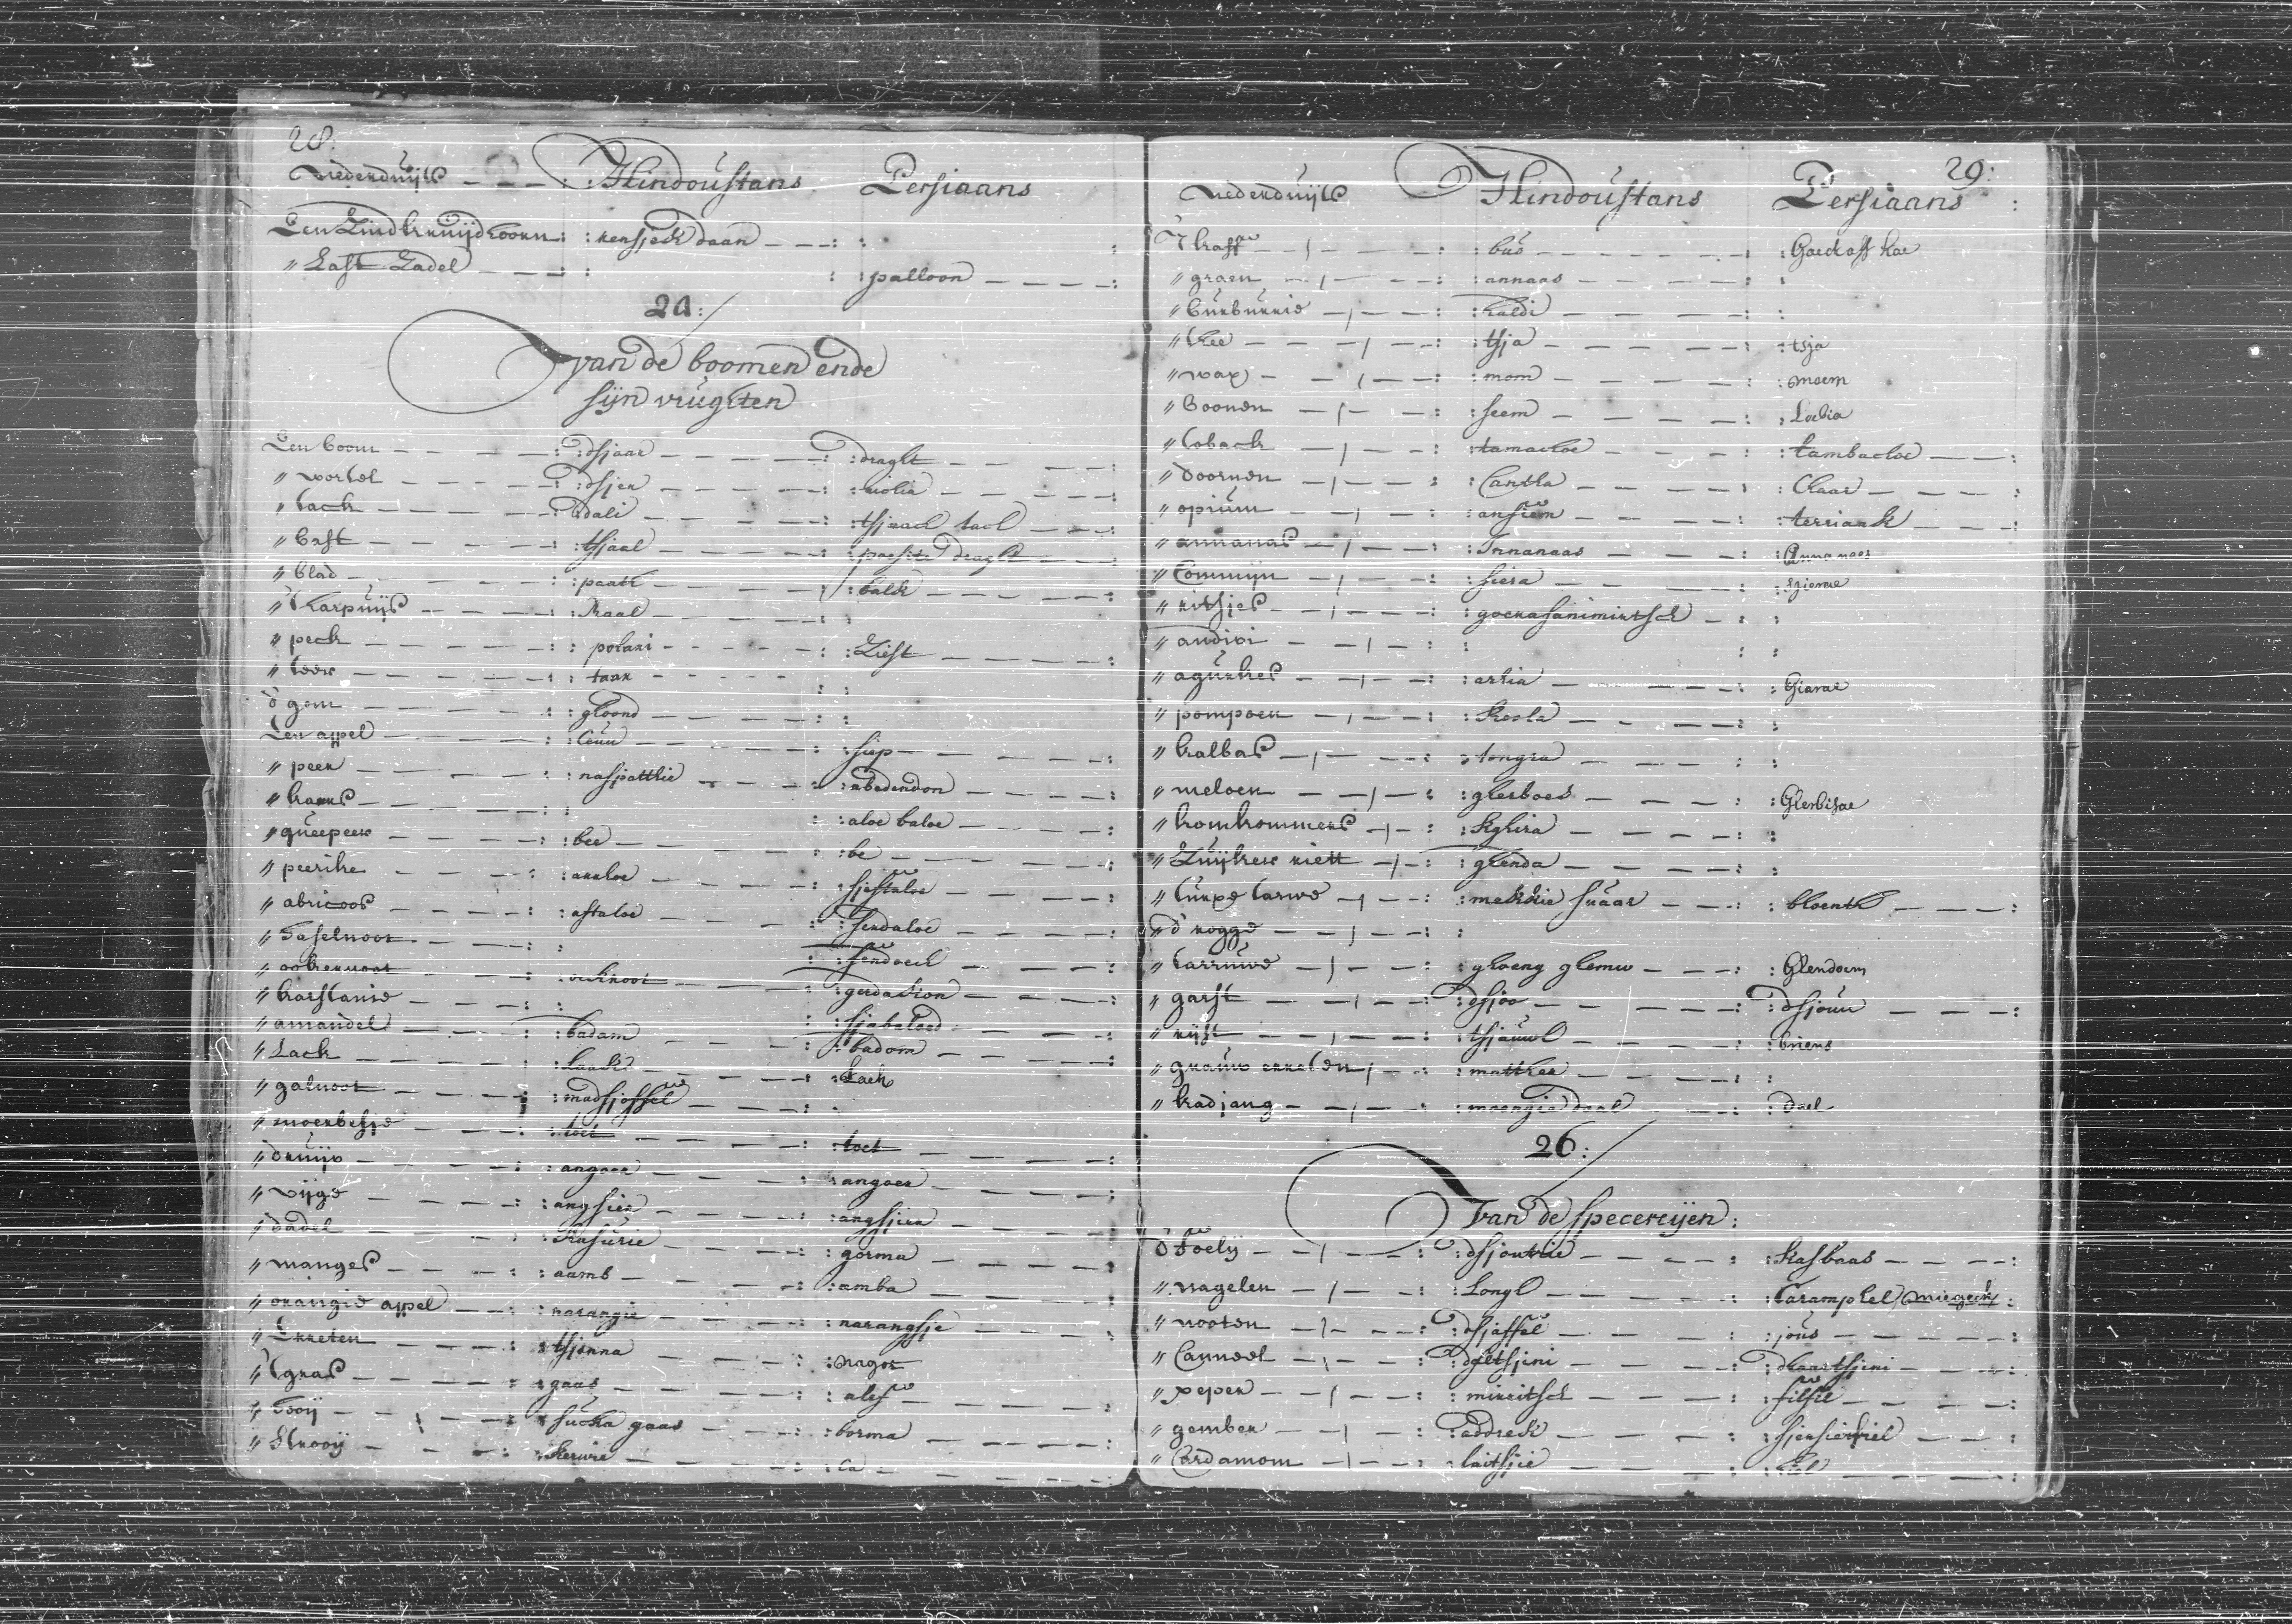 28.
Nederduijts - - - : Hindoustans Persiaans
Een Zundkruijdhoorn : : kensjeck daan - - - : :
" Last Zadel - - - : : : : palloon - - - - :
24 :
van de boomen ende
sijn vrugten
Een boom - - - - : : dsjaar - - - - : : draght - - - - :
" wortel - - - - : : dsjer - - - - : : riolia - - - - :
" tack - - - - : dali - - - - : : tsjnach tacl - - :
" bast - - - - : : tsjaal - - - - : : poesta draght - - :
" blad - - - - : : paatr - - - - : : balck - - - - :
" 't harpuijs - - - : : Raal - - - - : :
" peck - - - - : : polani - - - - : : Ziest - - - - :
" teer - - - - : : taar - - - - : :
d' gom - - - - : : ghoond - - - - : :
Een appel - - - : : Ceuu - - - - : : siep - - - - :
" peer - - - - : : naspatthie - - - : : abedendon - - - :
" kaars - - - - : : : : aloe baloe - - - :
" queepeer - - - : : bee - - - - : : be - - - - :
" peerike - - - : : aruhoe - - - - : : sjeftaloe - - - :
" abricoos - - - : : aftaloe - - - : : serdaloe - - - :
" Haselnoot - - - : : : : fendoeck - - - :
" ookernoot - - - : : ackroot - - - : : gerdackon - - - :
" karstanie - - - : : : : sjabaload - - - :
" amandel - - - : : badam - - - : : badom - - - :
" Lack - - - - : : laacks - - - : : Lack
" galnoot - - - : : madsjoffel - - - : .
" moerbesje - - - : : toet - - - - : : toet - - - :
" druijv - - - : : angoer - - - - : : angoer - - - :
" vijge - - - - : : angsier - - - : : angsjier - - - :
" dadel - - - : : kasurie - - - : : gorma - - - :
" manges - - - : : aamb - - - - : : amba - - - :
" orangie appel - - : : narangie - - - : : narangsje - - - :
" Erreten - - - : : tsjonna - - - : : nagot - - - :
" 't gras - - - : : gaas - - - - : : alef - - - :
" Hoij - - - : : sucka gaas - - - : : borma - - - :
" Strooij - - - : : Kerwie - - - : : Ca - - - :
29 :
Nederduijts Hindoustans Persiaans :
't kaff - - - : : bus - - - - : : Goeckoff kae
" graen - - - : : annaas - - - - : :
" burburrie - - - : : haldi - - - - : :
" thee - - - : : tsja - - - - : : tsja
" wax - - - : : mom - - - - : : moem
" Boonen - - - : : seem - - - - : : Lobia
" toback - - - : : tamackoe - - - : : tambackoe - - :
" doornen - - - : : Cantta - - - - : : Chaar - - - :
" opium - - - : : anfiem - - - - : : teriack - - - :
" annanas - - - : : Annanaas - - - : : Annanaas
" Commijn - - - : : siera - - - - : : sziere
" ritsjes - - - : : goerasanimirtsch - : :
" andivi - - - : : : :
" agurkes - - - : : aria - - - - : : Giaras
" pompoen - - - : : Koola - - - - : :
" kalbas - - - : : tongra - - - - : :
" meloen - - - : : gherboes - - - : : Gherbisae
" komkommers - - : : kghira - - - - : :
" Zuijker riett - - : : ghenda - - - - : :
" turxe tarwe - - : : meckie suaar - - - : : bloenth - - - :
d' rogge - - - : :
" tarruwe - - - : : ghoeng ghemu - - - : : Ghendoem
" garst - - - : : dsjoo - - - - : : dsjouu - - - :
" rijst - - - : : tsjauwl - - - - : : briens
" graauw erreten - - : : matther - - - - : :
" kadjang - - - : : moengie daal - - - : : daal
26 :
Van de specereijen :
d' foelij - - - : : dsjoutrie - - - : : Kasbaas - - - :
" nagelen - - - : : Longl - - - - : : Caramphel (miegeck) :
" nooten - - - : : dsjaffel - - - : : jous - - - :
" Canneel - - - : : daltsjini - - - : : dhaartsjini - - :
" peper - - - : : miritsch - - - : : filfil - - - :
" gember - - - : : addreck - - - : : sjensiebiel - - :
" Cardamom - - - : : laitsjie - - - : : Hel - - - :